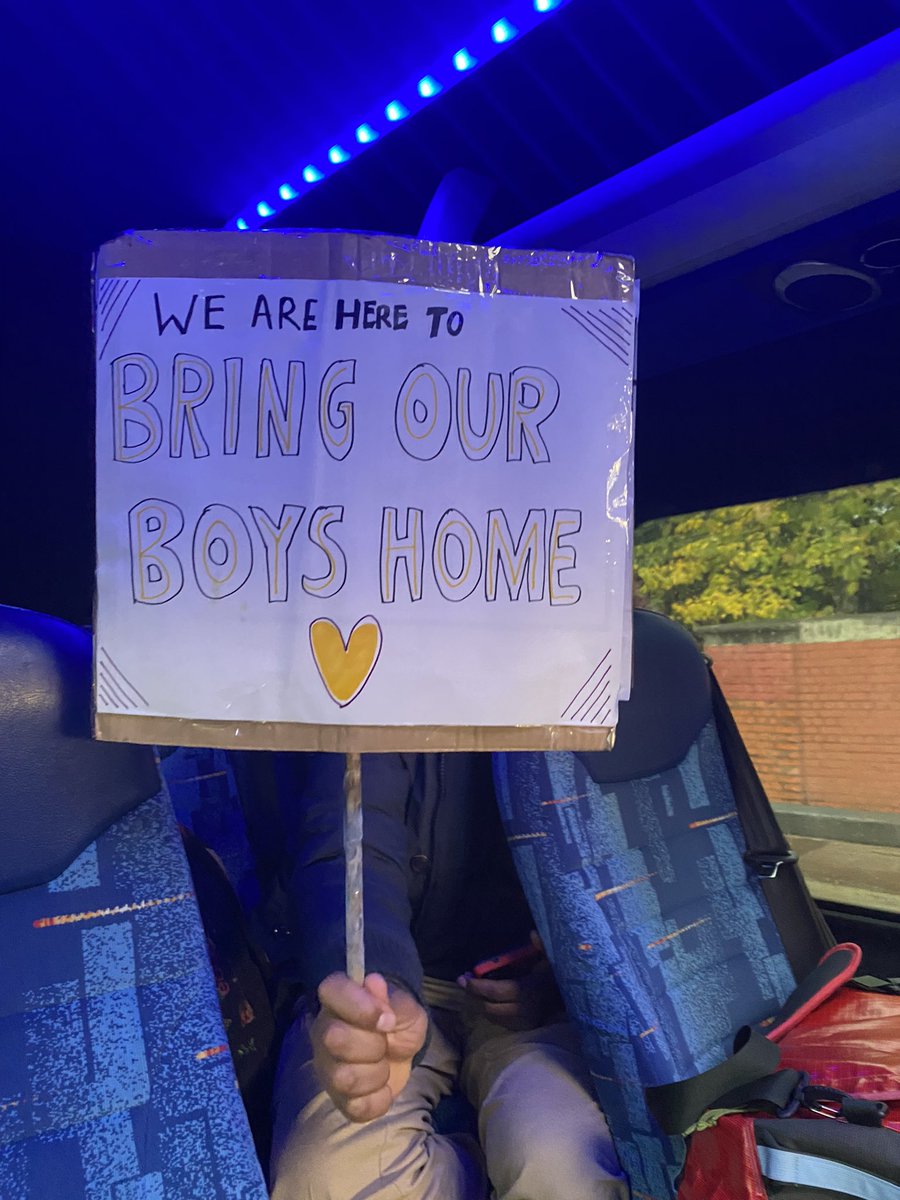 WE ARE HERE TO
BRING OUR
BOYS HOME